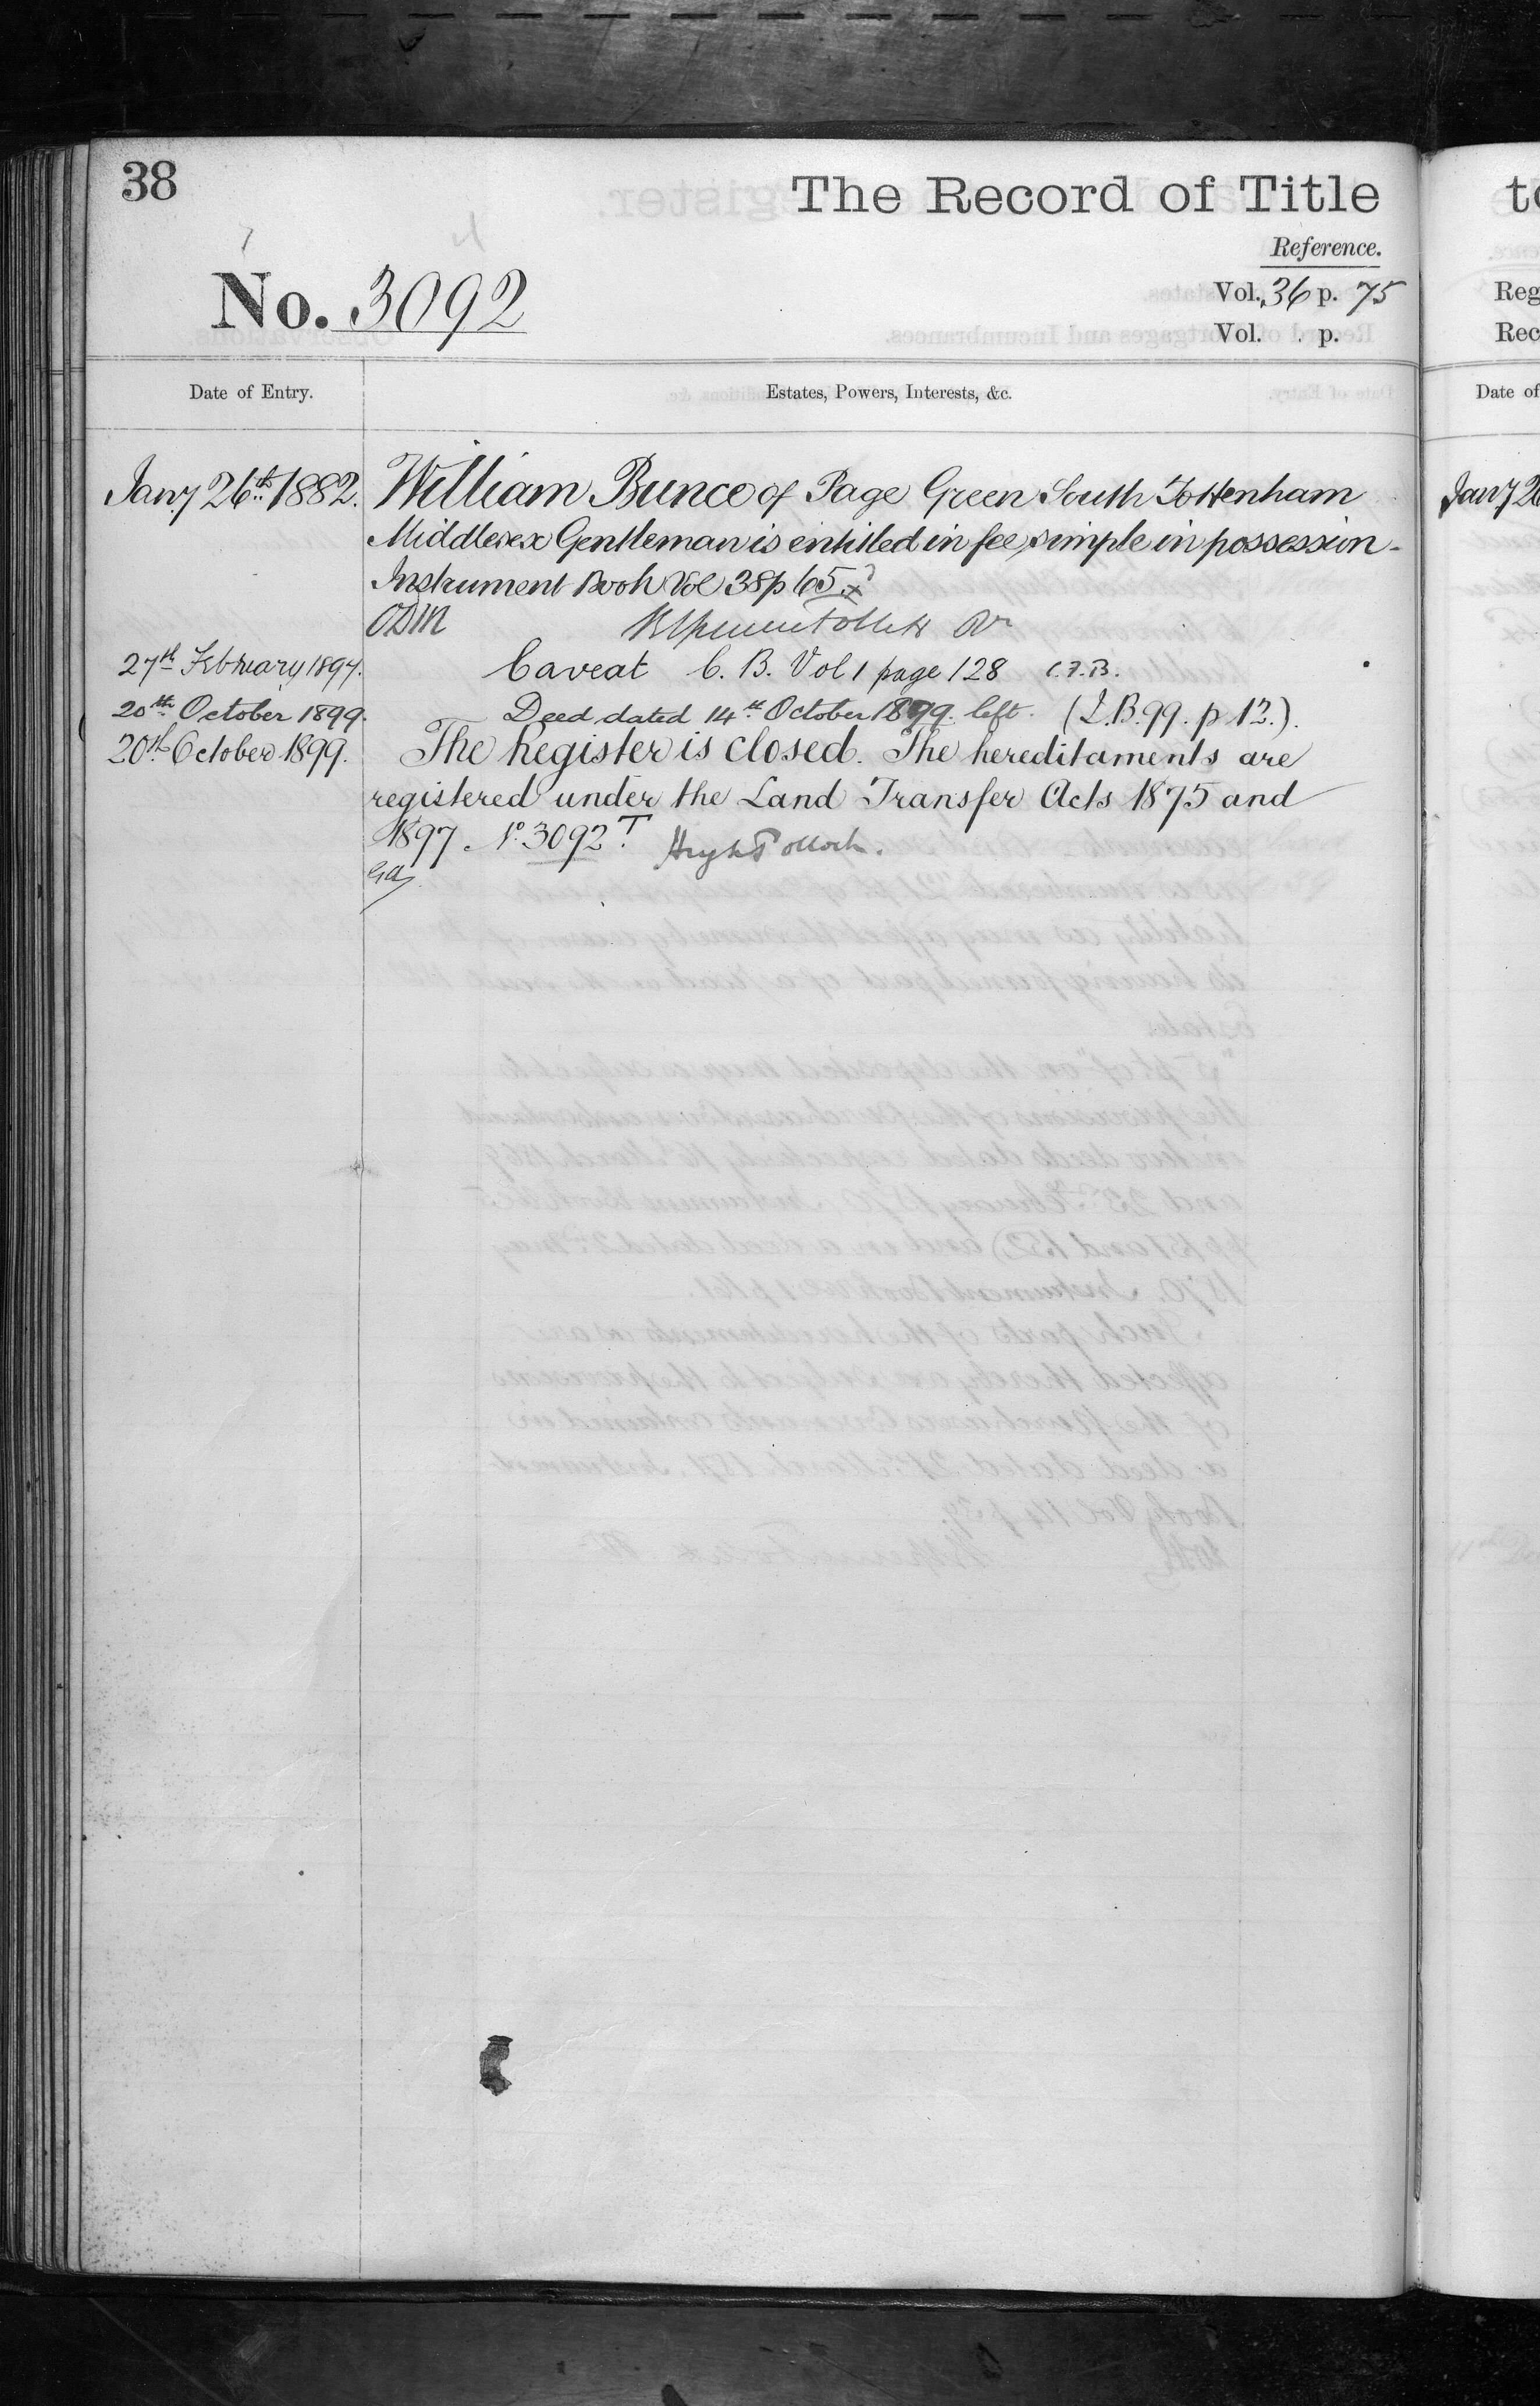 38
The Record of Title
Reference.
No. 3092
Vol. 36 p. 75
Vol. p.
Date of Entry.
Estates, Powers, Interests, &c.
Jany 26th 1882.
William Bunce of Page Green South Tottenham
Middlesex Gentleman is entitled in fee simple in possession -
Instrument Book Vol 38 p 65
ODM
27th February 1897.
Caveat C. B. Vol 1 page 128 C.F.B.
20th October 1899.
Deed dated 14th October 1899. left. (I.B. 99. p 12.).
20th October 1899.
The Register is closed. The hereditaments are
registered under the Land Transfer Acts 1875 and
1897. No. 3092 T. Hugh Pollock.
to
Reg
Rec
Date of
Jany 26